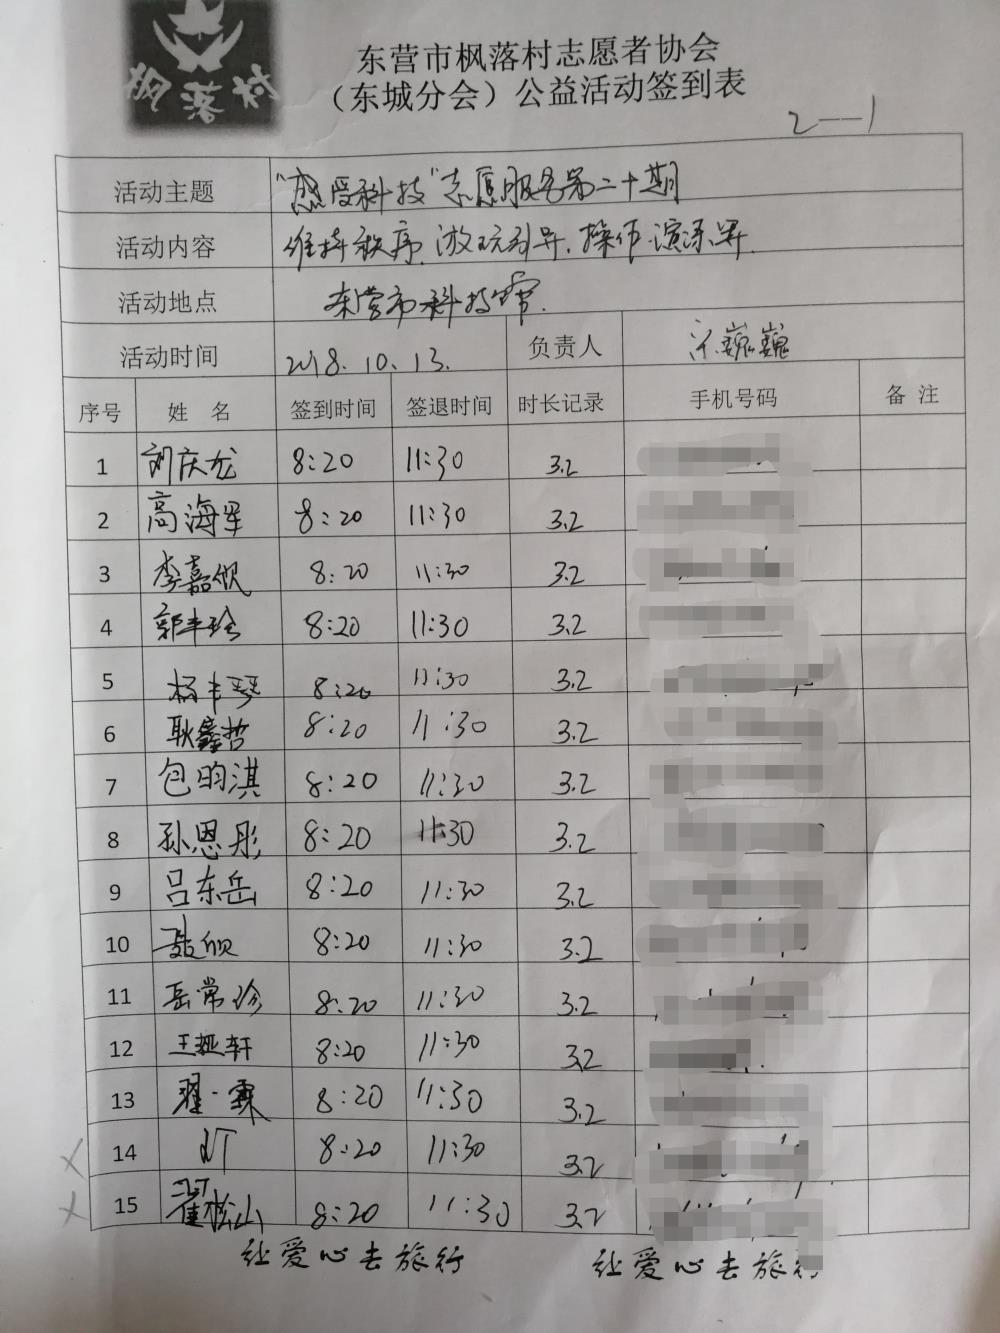 枫落村
东营市枫落村志愿者协会
（东城分会）公益活动签到表
2---1
活动主题 "感受科技"志愿服务第二十期
活动内容 维持秩序、游玩引导、操作演示等.
活动地点 东营市科技馆.
活动时间 2018.10.13. 负责人 宋巍巍
序号 姓 名 签到时间 签退时间 时长记录 手机号码 备 注
1 刘庆龙 8:20 11:30 3.2
2 高海军 8:20 11:30 3.2
3 李嘉佩 8:20 11:30 3.2
4 郭丰玲 8:20 11:30 3.2
5 杨丰琴 8:20 11:30 3.2
6 耿鑫哲 8:20 11:30 3.2
7 包昀淇 8:20 11:30 3.2
8 孙恩彤 8:20 11:30 3.2
9 吕东岳 8:20 11:30 3.2
10 8:20 11:30 3.2
11 岳常珍 8:20 11:30 3.2
12 王亚轩 8:20 11:30 3.2
13 翟一霖 8:20 11:30 3.2
14 8:20 11:30 3.2
15 翟松山 8:20 11:30 3.2
让爱心去旅行 让爱心去旅行